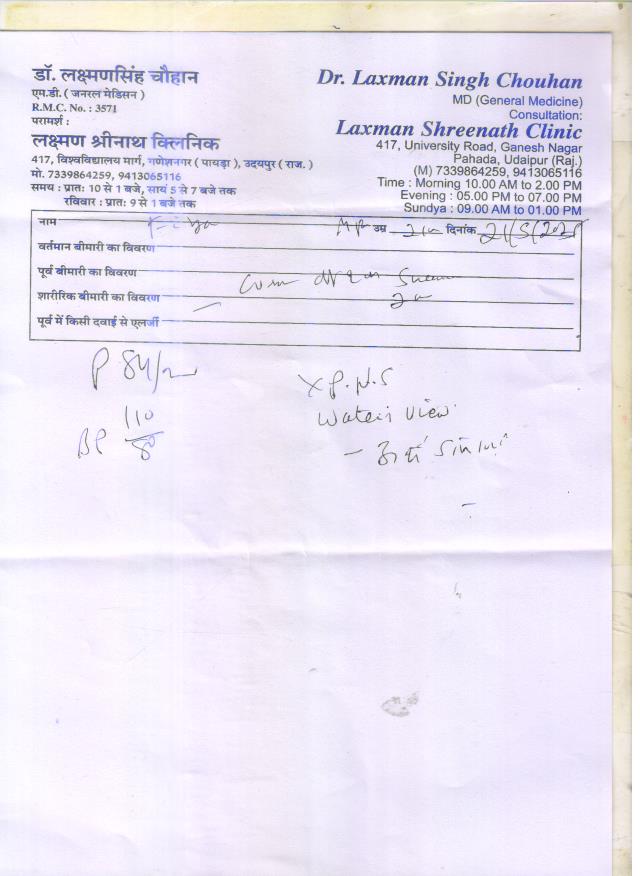 डॉ. लक्ष्मणसिंह चौहान
एम.डी. ( जनरल मेडिसन )
R.M.C. No. : 3571
परामर्श :
लक्ष्मण श्रीनाथ क्लिनिक
417, विश्वविद्यालय मार्ग, गणेशनगर ( पायड़ा ), उदयपुर ( राज. )
मो. 7339864259, 9413065116
समय : प्रातः 10 से 1 बजे, सायं 5 से 7 बजे तक
रविवार : प्रातः 9 से 1 बजे तक
Dr. Laxman Singh Chouhan
MD (General Medicine)
Consultation:
Laxman Shreenath Clinic
417, University Road, Ganesh Nagar
Pahada, Udaipur (Raj.)
(M) 7339864259, 9413065116
Time : Morning 10.00 AM to 2.00 PM
Evening : 05.00 PM to 07.00 PM
Sundya : 09.00 AM to 01.00 PM
नाम उम्र दिनांक
वर्तमान बीमारी का विवरण
पूर्व बीमारी का विवरण
शारीरिक बीमारी का विवरण
पूर्व में किसी दवाई से एलर्जी
P 84/m
BP 110/80
X P.N.S
Water's View